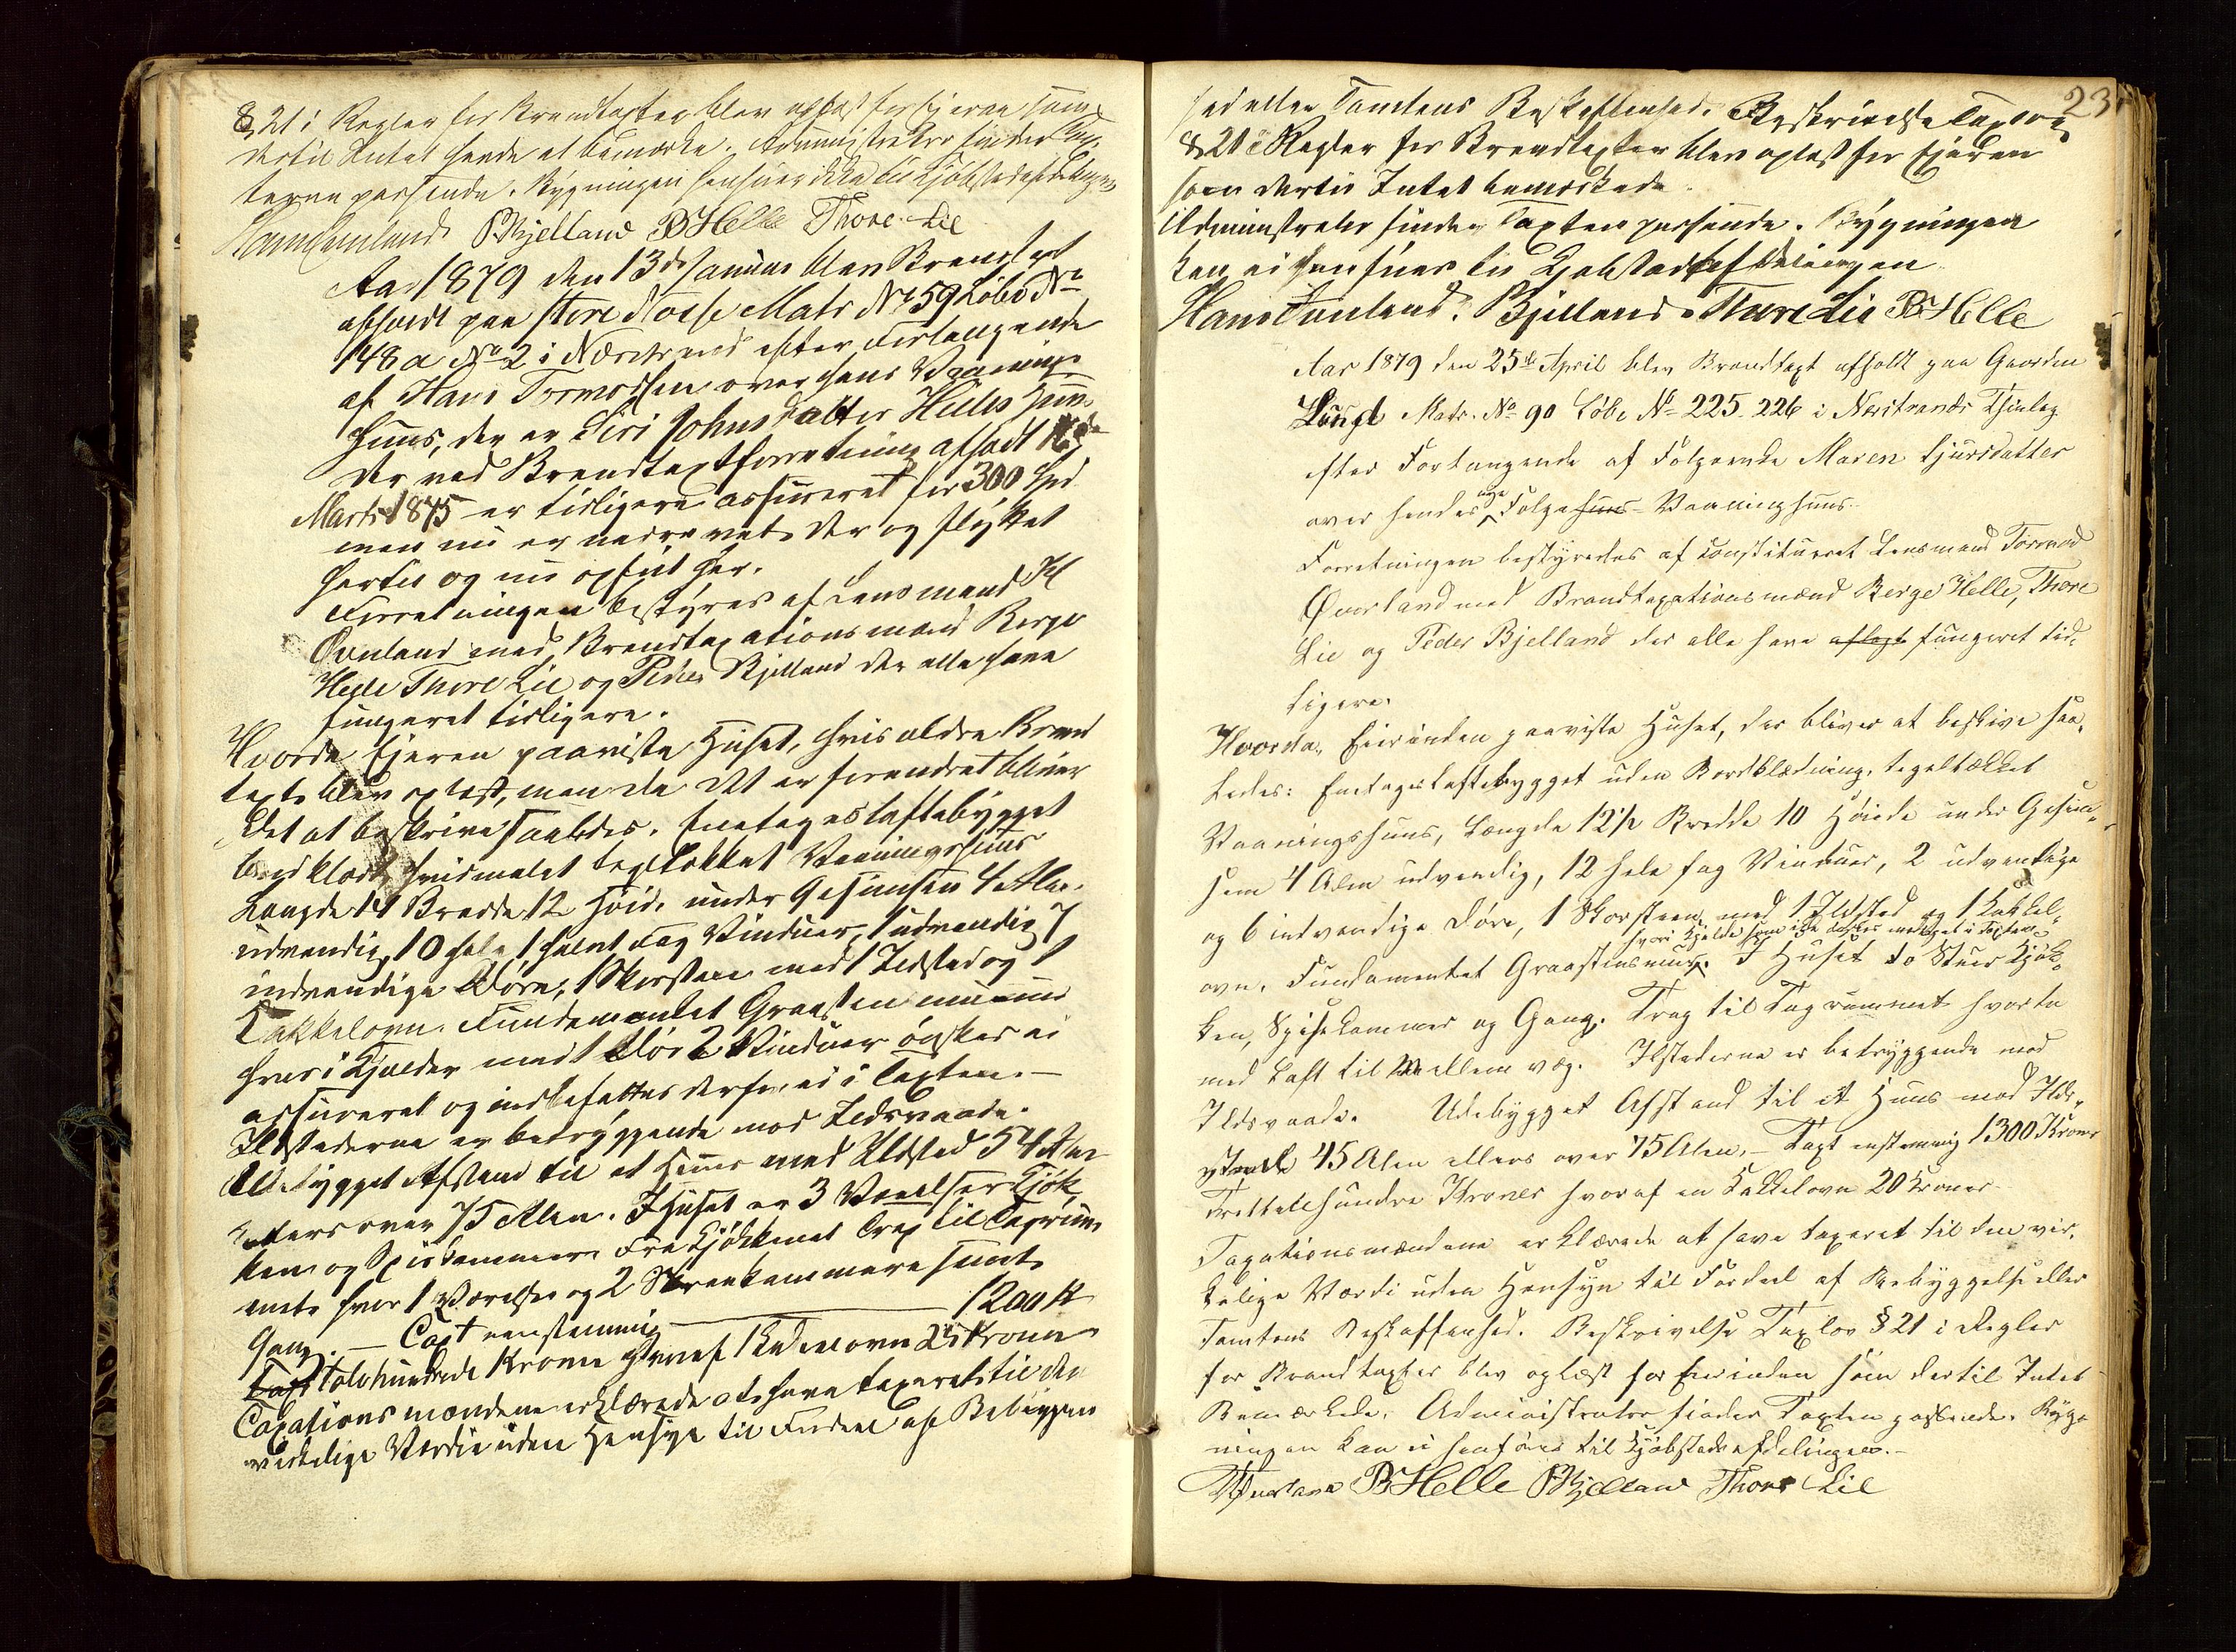 § 21 i Regler for Brandtaxter blev oplæst for Ejeren som
dertil Intet havde at bemærke. Administrator finder Tax-
teren passende. Bygningen henføres ikke til Kjøbstadafdelingen
Hans Øvenland PBjelland BHelle Thore Lie
Aar 1879 den 13de Januar blev Brandtaxt
afholdt paa store Matr No 59 Løbe No
148a No 2 i Nærstrand efter Forlangende
af Hans Tormodsen over hans Vaanings-
huus, der er Siri Johnsdatter Helles Huus
der ved Brandtaxtforretning afholdt
Marts 1875 er tidligere assureret for 300 Spd
men nu er nedrevet der og flyttet
hertil og nu opført her.
Forretningen bestyres af Lensmand H
Øvenland med Brandtaxationsmænd Berge
Helle Thore Lie og Peder Bjelland der alle have
fungeret tidligere.
Hvorda Ejeren paaviste Huset, hvis ældre Brand
taxt blev oplæst, men da det er forandret bliver
det at beskrive saaledes. Eenetages laftebygget
bordklædt hvidmalet tegltækket Vaaningshuus
Længde 14 Bredde 12 Høide under Gesimsen 4 Alen
udvendig, 10 hele 1 halvt Fag Vinduer, 1 udvendig 7
indvendige Døre, 1 Skorsteen med 1 Ildsted og 1
Kakkelovn. Fundamentet Graasteenmuur
hvori Kjælder med 1 Dør 2 Vinduer ønskes ei
assureret og indbefattes derfor ei i Taxten. —
Ildstederne er betryggende mod Ildsvaade.
Udebygget Afstand til et Huus med Ildsted 54 Alen
ellers over 75 Alen. I Huset er 3 Værelser Kjøk-
ken og Spiskammer. Fra Kjøkkenet Trap til Tagrum-
met hvor 1 Værelse og 2 kammere samt
Gang. — Taxt eenstemmig — 1200 Kr
Taxt Tolvhundrede Kroner hvoraf 1 Kakelovn 25 Kroner
Taxationsmændene erklærede at have taxeret til den
virkelige Værdie uden Hensyn til Fordeel af Bebyggen
23
hed eller Tomtens Beskaffenhed. Beskrivelse Taxlov
§ 21 i Regler for Brandtaxter blev oplæst for Ejeren
som dertil Intet bemærkede.
Administrator finder Taxten passende. Bygningen
kan ei henføres til Kjøbstadafdelingen.
Hans Øvenland. PBjelland Thore Lie BHelle
Aar 1879 den 25de April blev Brandtaxt afholdt paa Gaarden
Lunde Matr. No 90 Løbe No 225. 226 i Nærstrands Thinlag
efter Forlangende af Følgeenke Maren Sjursdatter
over hendes nye Følgehuus-Vaaninghuus.
Forretningen bestyredes af constitueret Lensmand Tormod
Øverland med Brandtaxationsmænd Berge Helle, Thore
Lie og Peder Bjelland der alle have aflagt fungeret tid-
ligere.
Hvorda Eierinden paaviste Huset, der bliver at beskrive saa-
ledes: Enetages laftebygget uden Bordklædning, tegeltækket
Vaaningshuus, Længde 12½ Bredde 10 Høide under Gesim-
sem 4 Alen udvendig, 12 hele fag Vinduer, 2 udvendige
og 6 indvendige Døre, 1 Skorsteen med 1 Ildsted og 1 Kakkel-
hvori Kjælder som ikke ønskes medtaget i Taxten
ovn. Fundamentet Graasteensmuur. I Huset to Stuer Kjøk-
ken, Spisekammer og Gang. Trap til Tagrummet hvorta
med Loft til Mellem væg. Ildstederne er betryggende mod
Ildsvaade. Udebygget Afstand til et Huus med Ild-
sted 45 Alen ellers over 75 Alen. — Taxt enstemmig 1300 Kroner
Trettenhundre Kroner hvoraf en Kakkelovn 20 Kroner
Taxationsmændene erklærede at have taxeret til den vir-
kelige Værdi uden Hensyn til Fordeel af Bebyggelse eller
Tomtens Beskaffenhed. Beskrivelse Taxlov § 21 i Regler
for Brandtaxter blev oplæst for Eierinden som dertil Intet
Bemærkede. Administrator finder Taxten passende. Byg-
ningen kan ei henføres til Kjøbstadafdelingen. —
TØverland BHelle PBjelland Thore Lie